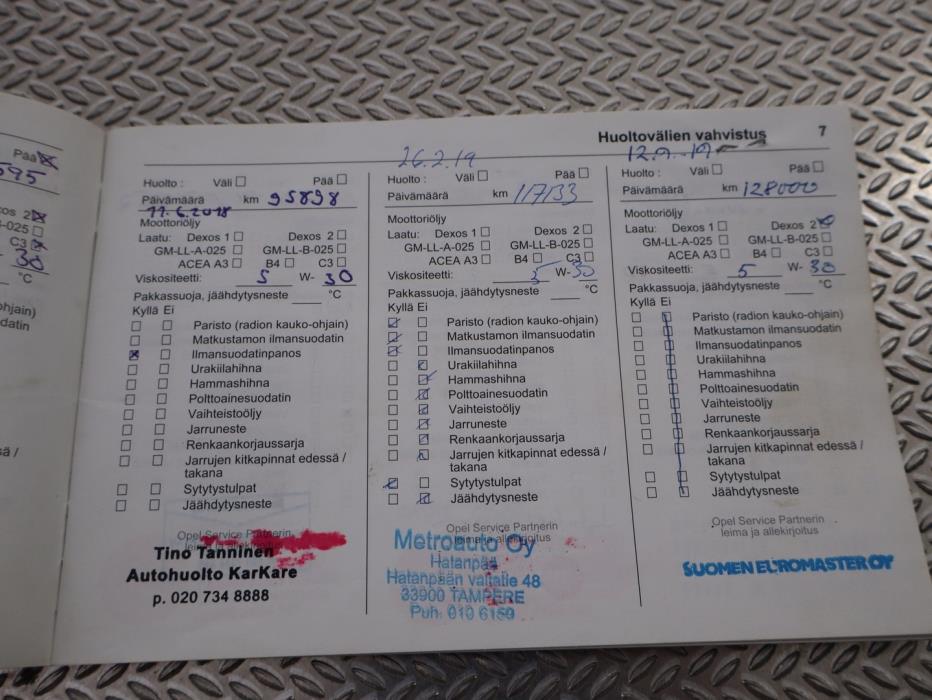 Pää
595
os 2
-025
C3
30
°C
ohjain)
datin
sä /
Huoltovälien vahvistus 7
Huolto : Väli Pää
Päivämäärä km 95898
11.6.2018
Moottoriöljy
Laatu: Dexos 1 Dexos 2
GM-LL-A-025 GM-LL-B-025
ACEA A3 B4 C3
Viskositeetti: 5 W- 30
Pakkassuoja, jäähdytysneste °C
Kyllä Ei
Paristo (radion kauko-ohjain)
Matkustamon ilmansuodatin
Ilmansuodatinpanos
Urakiilahihna
Hammashihna
Polttoainesuodatin
Vaihteistoöljy
Jarruneste
Renkaankorjaussarja
Jarrujen kitkapinnat edessä /
takana
Sytytystulpat
Jäähdytysneste
Opel Service Partnerin
leima ja allekirjoitus
Tino Tanninen
Autohuolto KarKare
p. 020 734 8888
26.2.19
Huolto : Väli Pää
Päivämäärä km 117133
Moottoriöljy
Laatu: Dexos 1 Dexos 2
GM-LL-A-025 GM-LL-B-025
ACEA A3 B4 C3
Viskositeetti: 5 W- 30
Pakkassuoja, jäähdytysneste °C
Kyllä Ei
Paristo (radion kauko-ohjain)
Matkustamon ilmansuodatin
Ilmansuodatinpanos
Urakiilahihna
Hammashihna
Polttoainesuodatin
Vaihteistoöljy
Jarruneste
Renkaankorjaussarja
Jarrujen kitkapinnat edessä /
takana
Sytytystulpat
Jäähdytysneste
Opel Service Partnerin
leima ja allekirjoitus
Metroauto Oy
Hatanpää
Hatanpään valtatie 48
33900 TAMPERE
Puh. 010 6150
12.9.19
Huolto : Väli Pää
Päivämäärä km 128000
Moottoriöljy
Laatu: Dexos 1 Dexos 2
GM-LL-A-025 GM-LL-B-025
ACEA A3 B4 C3
Viskositeetti: 5 W- 30
Pakkassuoja, jäähdytysneste °C
Kyllä Ei
Paristo (radion kauko-ohjain)
Matkustamon ilmansuodatin
Ilmansuodatinpanos
Urakiilahihna
Hammashihna
Polttoainesuodatin
Vaihteistoöljy
Jarruneste
Renkaankorjaussarja
Jarrujen kitkapinnat edessä /
takana
Sytytystulpat
Jäähdytysneste
Opel Service Partnerin
leima ja allekirjoitus
SUOMEN EUROMASTER OY